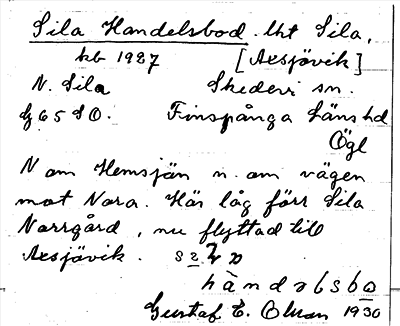 Sila Handelsbod. lht Sila,
kb 1927 [Axsjövik]
N. Sila Skedevi sn.
G 65 SO. Finspånga länshd
Ögl
N om Hemsjön n. om vägen
mot Nora. Här låg förr Sila
Norrgård, nu flyttad till
Axsjövik.
hàndəlsbo
Gustaf E. Olson 1930